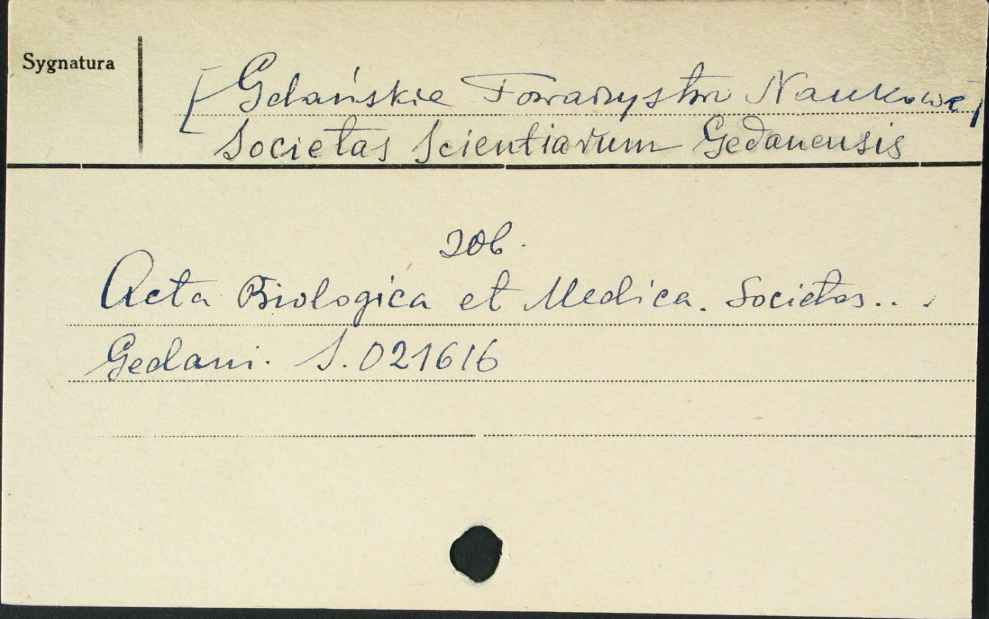 Sygnatura
[Gdańskie Towarzystwo Naukowe]
Societas Scientiarum Gedanensis
Zob.
Acta Biologica et Medica. Societas...
Gedani. S.021616